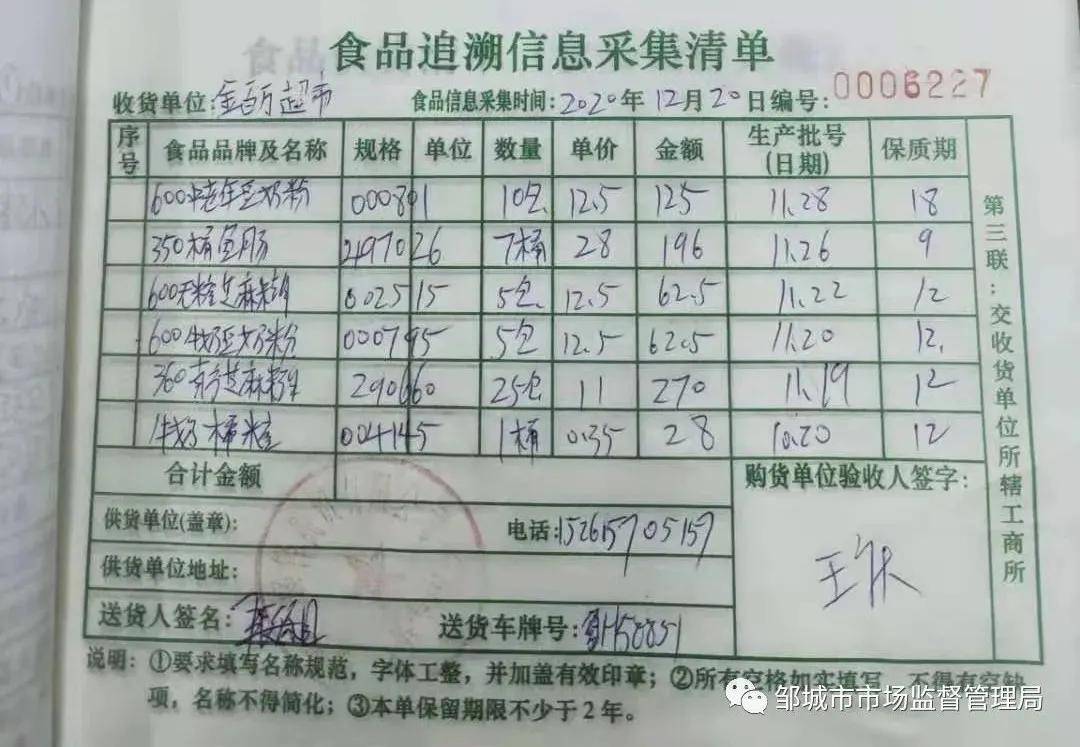 食品追溯信息采集清单
收货单位:金百万超市 食品信息采集时间:2020年12月20日编号:0006227
序号 食品品牌及名称 规格 单位 数量 单价 金额 生产批号(日期) 保质期
600 豆奶粉 000801 10包 12.5 125 11.28 18
350桶鱼肠 2497026 7桶 28 196 11.26 9
600无糖芝麻糊 002515 5包 12.5 62.5 11.22 12
600牛奶豆奶粉 000795 5包 12.5 62.5 11.20 12.
360 芝麻 290660 25包 11 270 11.19 12
牛奶桶 004145 1桶 0.35 28 10.20 12
合计金额
购货单位验收人签字:
供货单位(盖章): 电话:152615705157
王
供货单位地址:
送货人签名: 送货车牌号:
第三联:交收货单位所辖工商所
说明:①要求填写名称规范,字体工整,并加盖有效印章;②所有空格如实填写,不得有空缺
项,名称不得简化;③本单保留期限不少于2年。
邹城市市场监督管理局